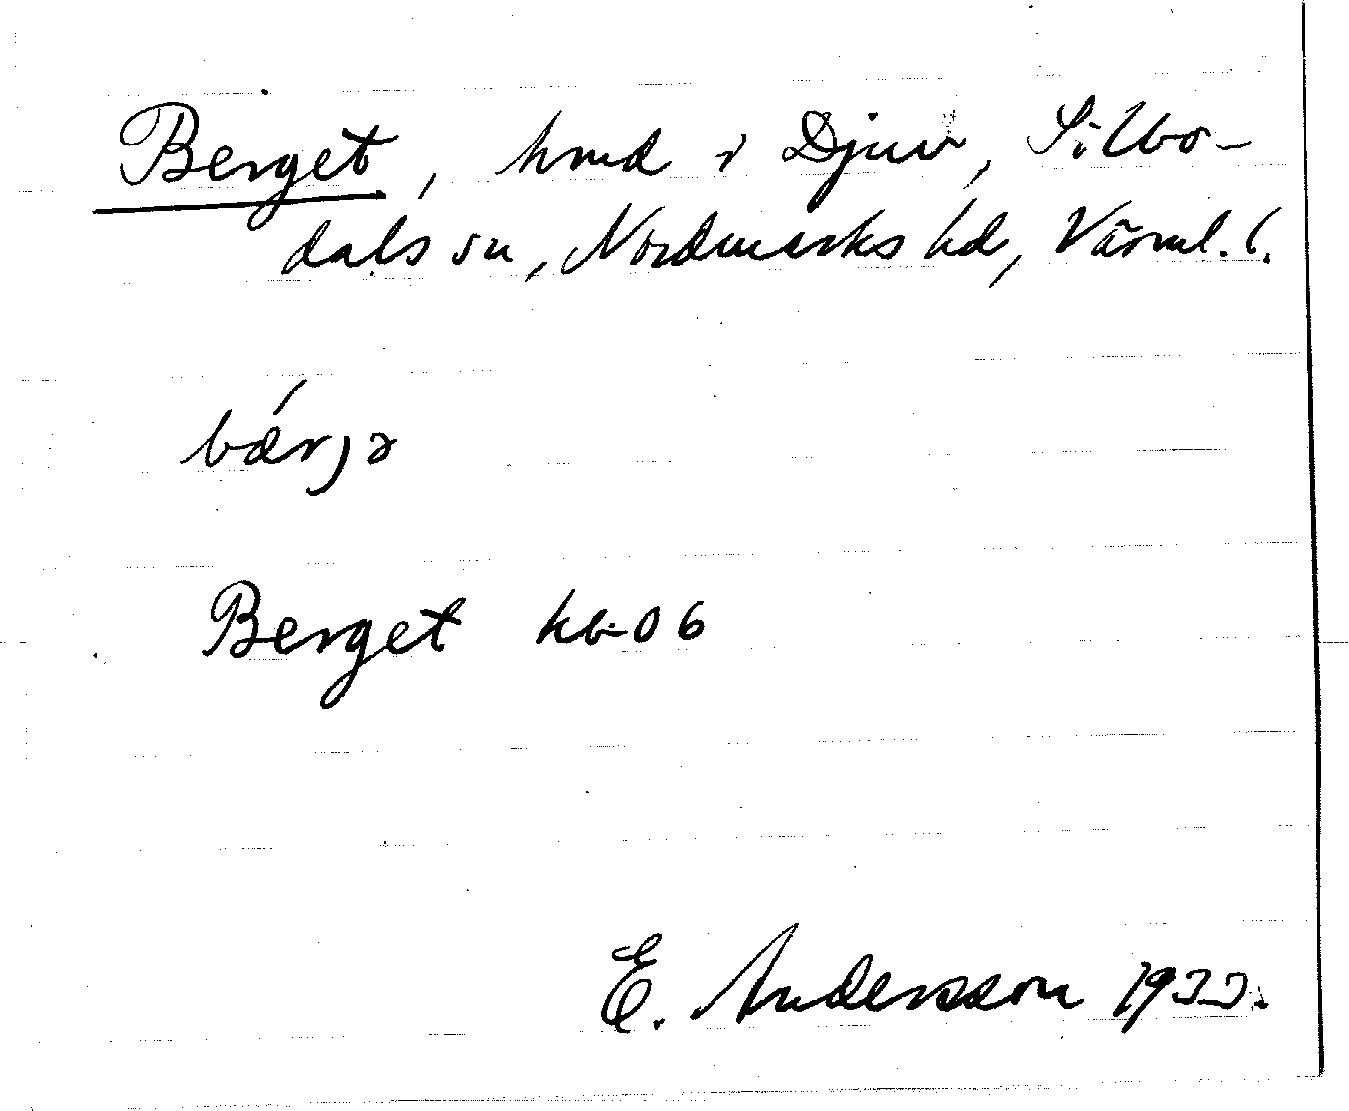 Berget, hmd i Djuv, Silbo-
dals sn, Nordmarks hd, Värml. l.
bǽrjə
Berget kb 06
E. Andersson 1933.